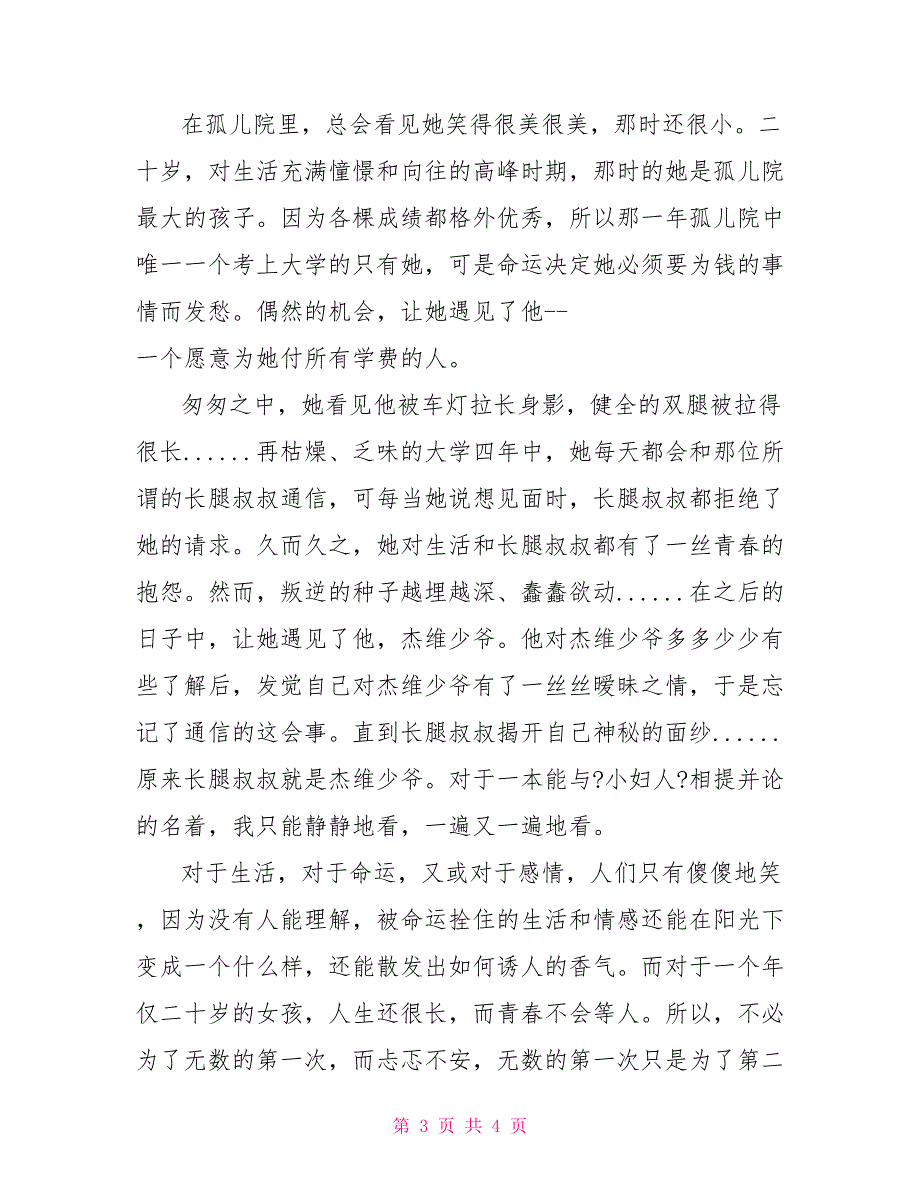 在孤儿院里，总会看见她笑得很美很美，那时还很小。二
十岁，对生活充满憧憬和向往的高峰时期，那时的她是孤儿院
最大的孩子。因为各棵成绩都格外优秀，所以那一年孤儿院中
唯一一个考上大学的只有她，可是命运决定她必须要为钱的事
情而发愁。偶然的机会，让她遇见了他--
一个愿意为她付所有学费的人。
匆匆之中，她看见他被车灯拉长身影，健全的双腿被拉得
很长......再枯燥、乏味的大学四年中，她每天都会和那位所
谓的长腿叔叔通信，可每当她说想见面时，长腿叔叔都拒绝了
她的请求。久而久之，她对生活和长腿叔叔都有了一丝青春的
抱怨。然而，叛逆的种子越埋越深、蠢蠢欲动......在之后的
日子中，让她遇见了他，杰维少爷。他对杰维少爷多多少少有
些了解后，发觉自己对杰维少爷有了一丝丝暧昧之情，于是忘
记了通信的这会事。直到长腿叔叔揭开自己神秘的面纱......
原来长腿叔叔就是杰维少爷。对于一本能与?小妇人?相提并论
的名着，我只能静静地看，一遍又一遍地看。
对于生活，对于命运，又或对于感情，人们只有傻傻地笑
，因为没有人能理解，被命运拴住的生活和情感还能在阳光下
变成一个什么样，还能散发出如何诱人的香气。而对于一个年
仅二十岁的女孩，人生还很长，而青春不会等人。所以，不必
为了无数的第一次，而忐忑不安，无数的第一次只是为了第二
第 3 页 共 4 页